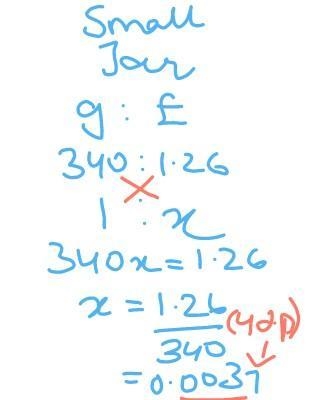 Small
Jar
g : £
340 : 1.26
1 : x
340x = 1.26
x = 1.26/340 (4d.p)
= 0.0037